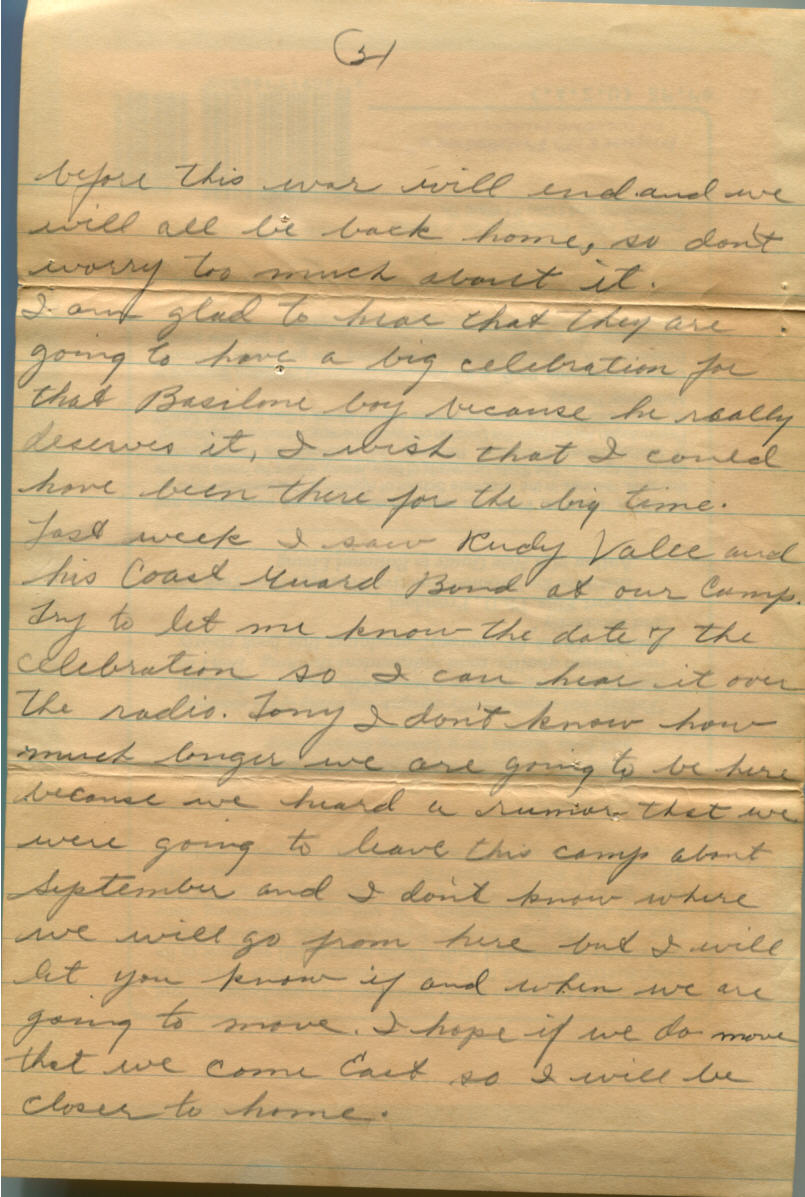 (3)
before this war will end and we
will all be back home, so don't
worry too much about it.
I am glad to hear that they are
going to have a big celebration for
that Basilone boy because he really
deserves it, I wish that I could
have been there for the big time.
Last week I saw Rudy Valee and
his Coast Guard Band at our Camp.
Try to let me know the date of the
celebration so I can hear it over
the radio. Tony I don't know how
much longer we are going to be here
because we heard a rumor that we
were going to leave this camp about
September and I don't know where
we will go from here but I will
let you know if and when we are
going to move. I hope if we do move
that we come East so I will be
closer to home.